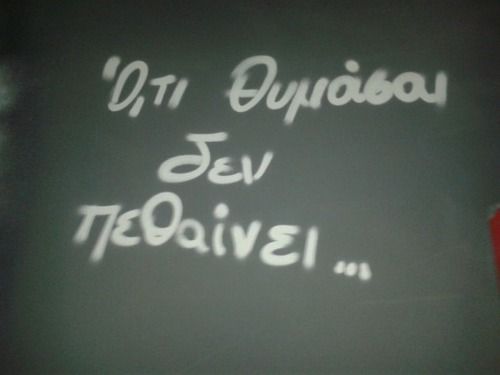 Ό,τι θυμάσαι
δεν
πεθαίνει...